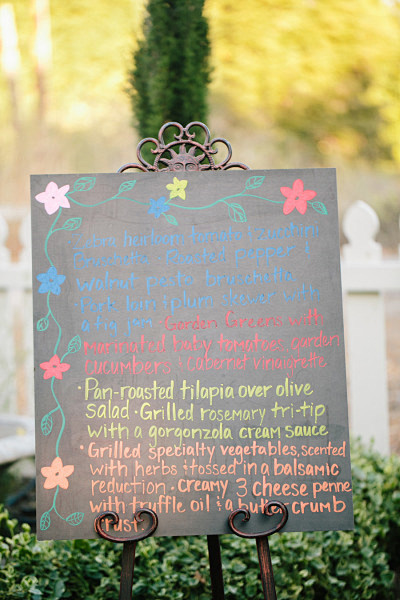 heirloom tomato &
Bruschetta · Roasted pepper &
walnut pesto bruschetta
· Pork loin & plum skewer with
a fig jam · Garden Greens with
Marinated baby tomatoes, garden
cucumbers & Cabernet vinaigrette
· Pan-roasted tilapia over olive
salad · Grilled rosemary tri-tip
with a gorgonzola cream sauce
· Grilled specialty vegetables, scented
with herbs & tossed in a balsamic
reduction · creamy 3 cheese penne
with truffle oil & a butter crumb
crust ·